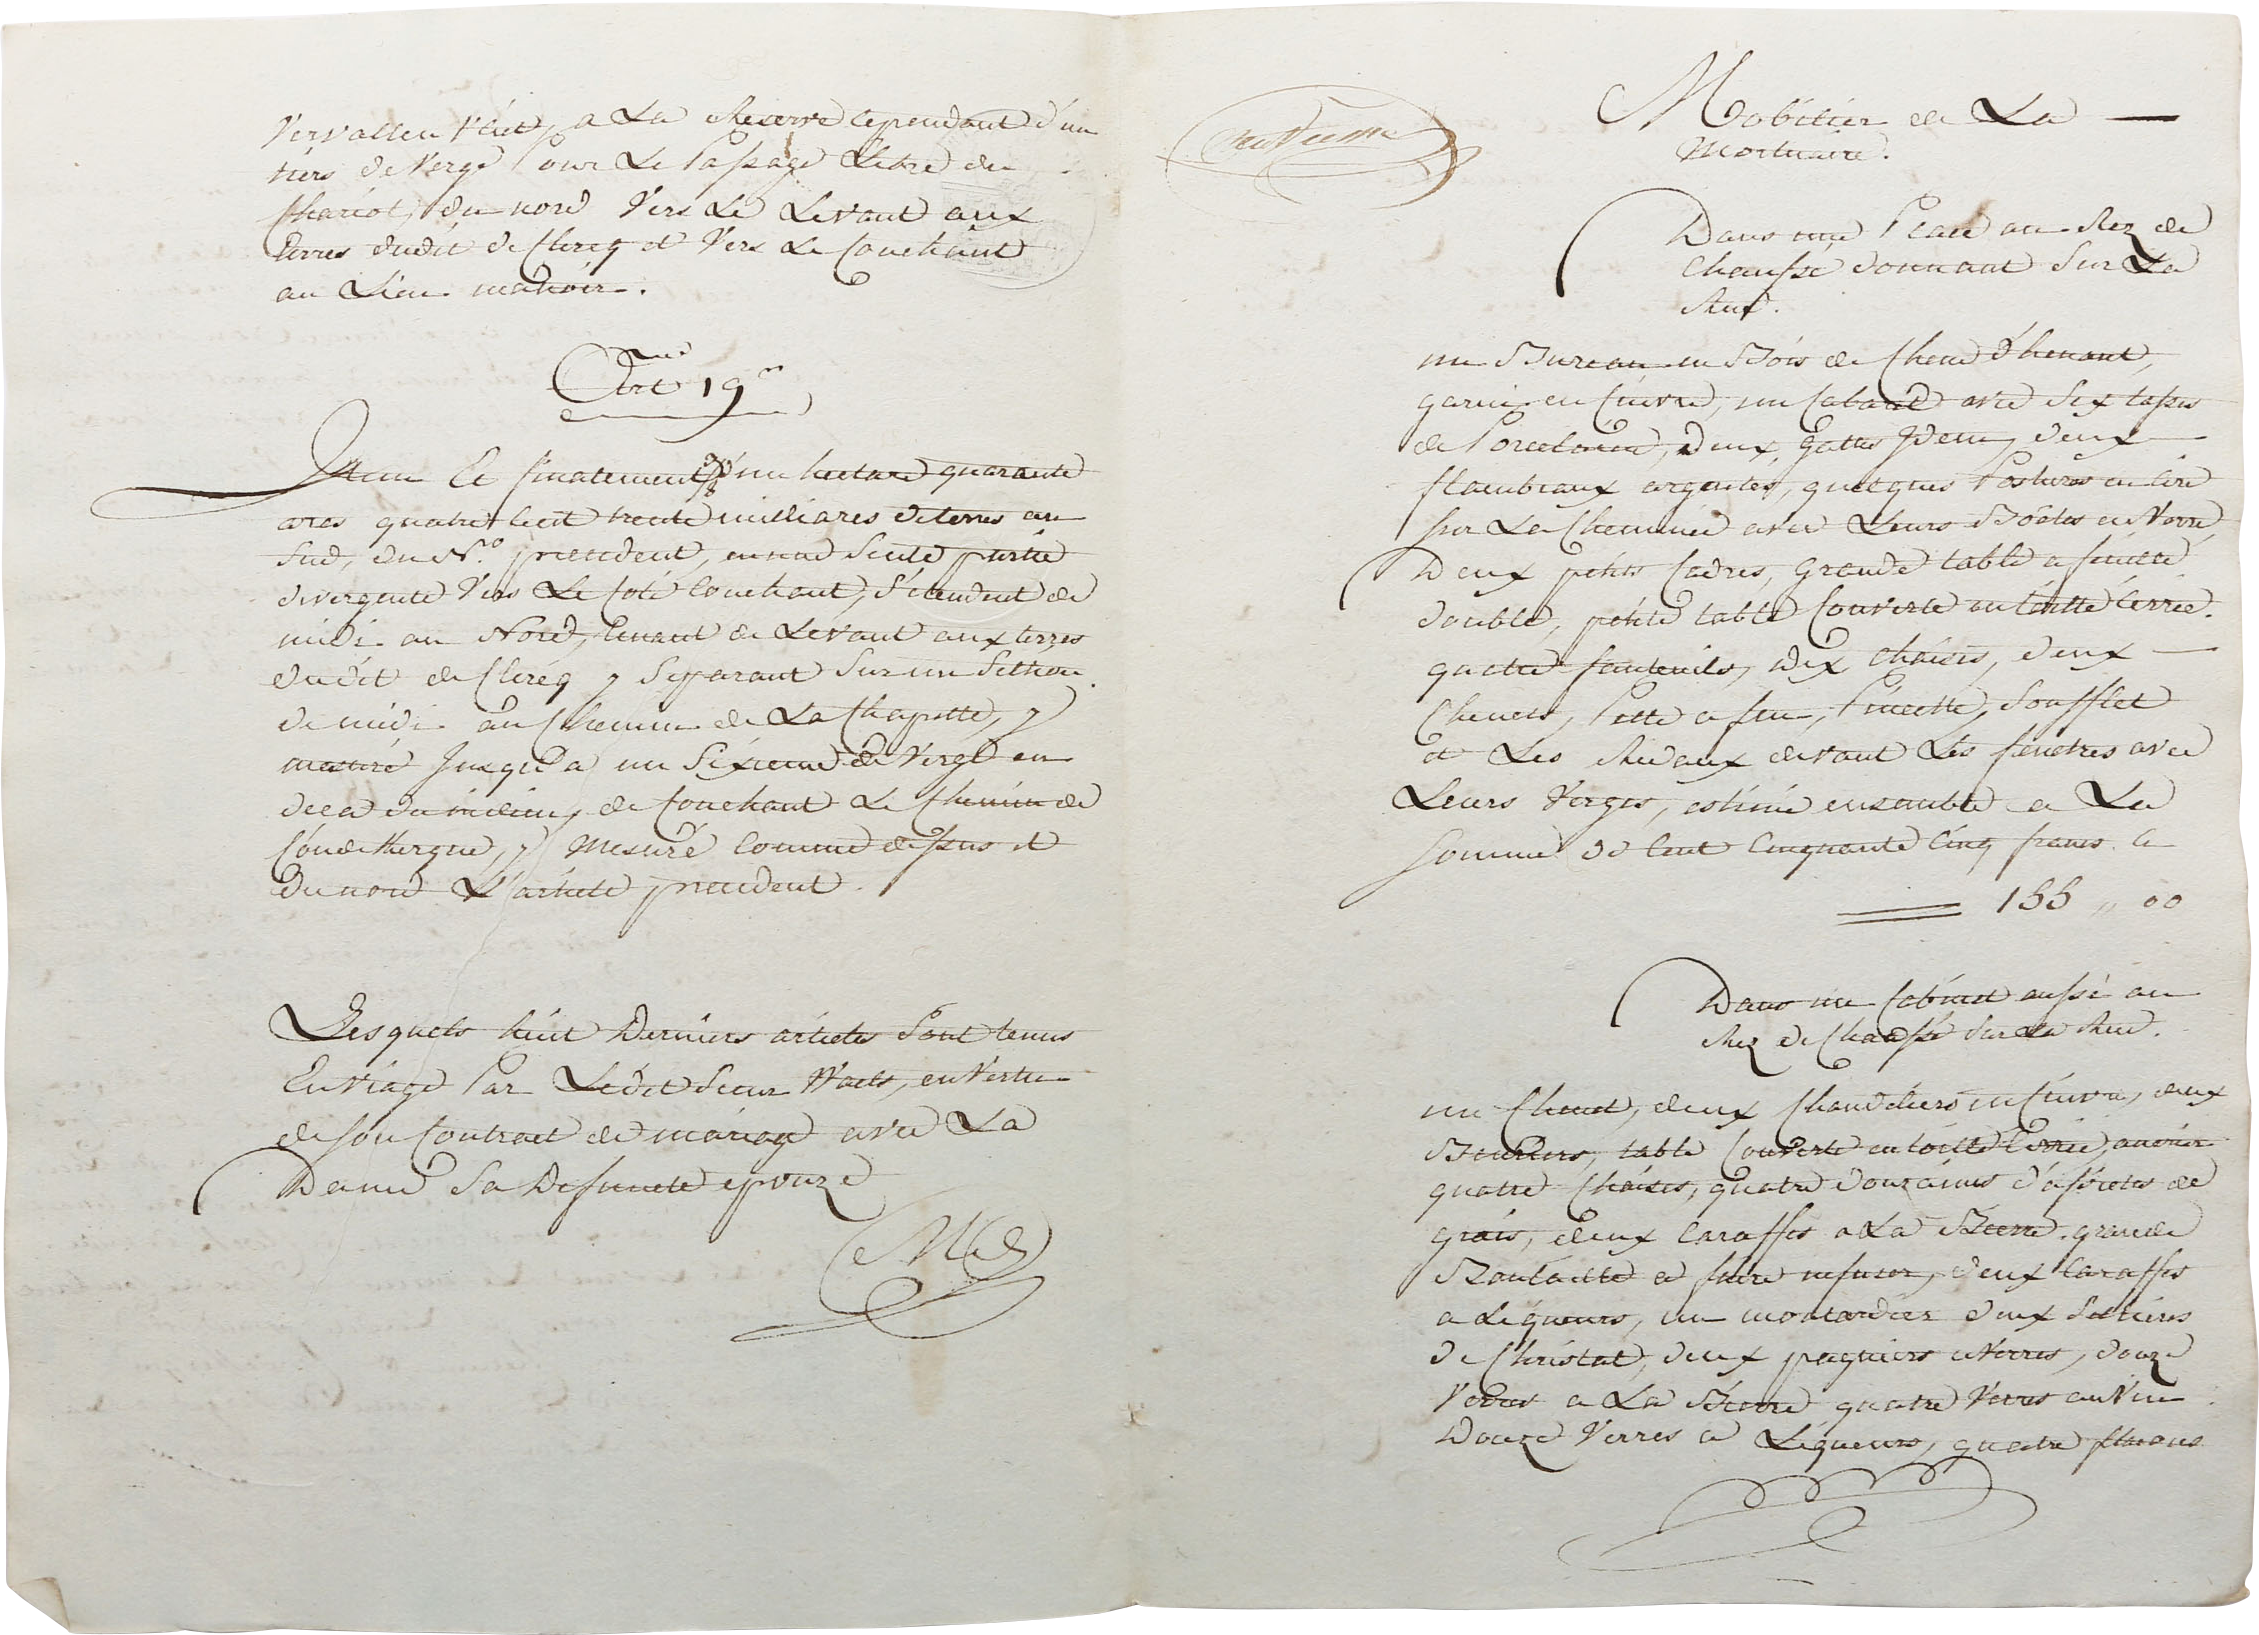 Vervallen Vliet, a La Reserve cependant d'un
tiers de Verge Pour Le Passage Libre du
Chariot, du nord Vers Le Levant aux
terres dudit de Clercq et Vers Le Couchant
au Lieu manoir.
Art 19me
Item Et finalement d'un hectare quarante
ares quatre cent trente milliares de terres au
Sud, du N.o precedent, en une Seule partie
divergente Vers Le Coté Couchant, S'étendent de
midi au Nord, tenant de Levant aux terres
dudit de Clercq y Separant Sur un Sillion
de midi au Chemin de La Chapelle, y
mesuré Jusqu'a un Sixieme de Verge en
deca du milieu, de Couchant Le Chemin de
Coudekerque, y Mesuré Comme dessus et
du nord L'article precedent.
Lesquels huit Derniers articles Sont tenus
En Viage Par Ledit Sieur Waels, en Vertu
de Son Contract de mariage avec La
Dame Sa Defuncte epouze
Neuvieme
Mobilier de La
Mortuaire.
Dans une Place au Rez de
Chaussé donnant Sur La
Rue.
un Bureau en Bois de Chene d'henant,
garni en Cuivre, un Cabaret avec Six tasses
de Porcelaine, Deux Jattes Idem, deux
flambeaux argentés, quelques Postures en Cire
sur La Cheminée avec Leurs Boëtes en Verre,
Deux petits Cadres, Grande table a feuille
double, petite table Couverte en toille Cirrée.
quatre fauteuils, dix chaises, deux
Chenets, Pelle a feu, Pincette, Soufflet
et Les Rideaux devant Les fenetres avec
Leurs Verges, estimé ensemble a La
Somme de Cent Cinquante Cinq francs c
155 ,, 00
Dans un Cabinet aussi au
Rez de Chaussé Sur La Rue.
un Chenet, deux Chandeliers en Cuivre, deux
table Couverte en toille Cirrée,
quatre Chaises, quatre douzaines d'assietes de
grais, deux Caraffes a La Bierre. grande
Boutaille a faire infuser, deux Caraffes
a Liqueurs, un moutardier deux Salieres
de Christal, deux pagniers a Verres, douze
Verres a La Bierre quatre Verres au Vin
Douze Verres a Liqueurs, quatre flacons